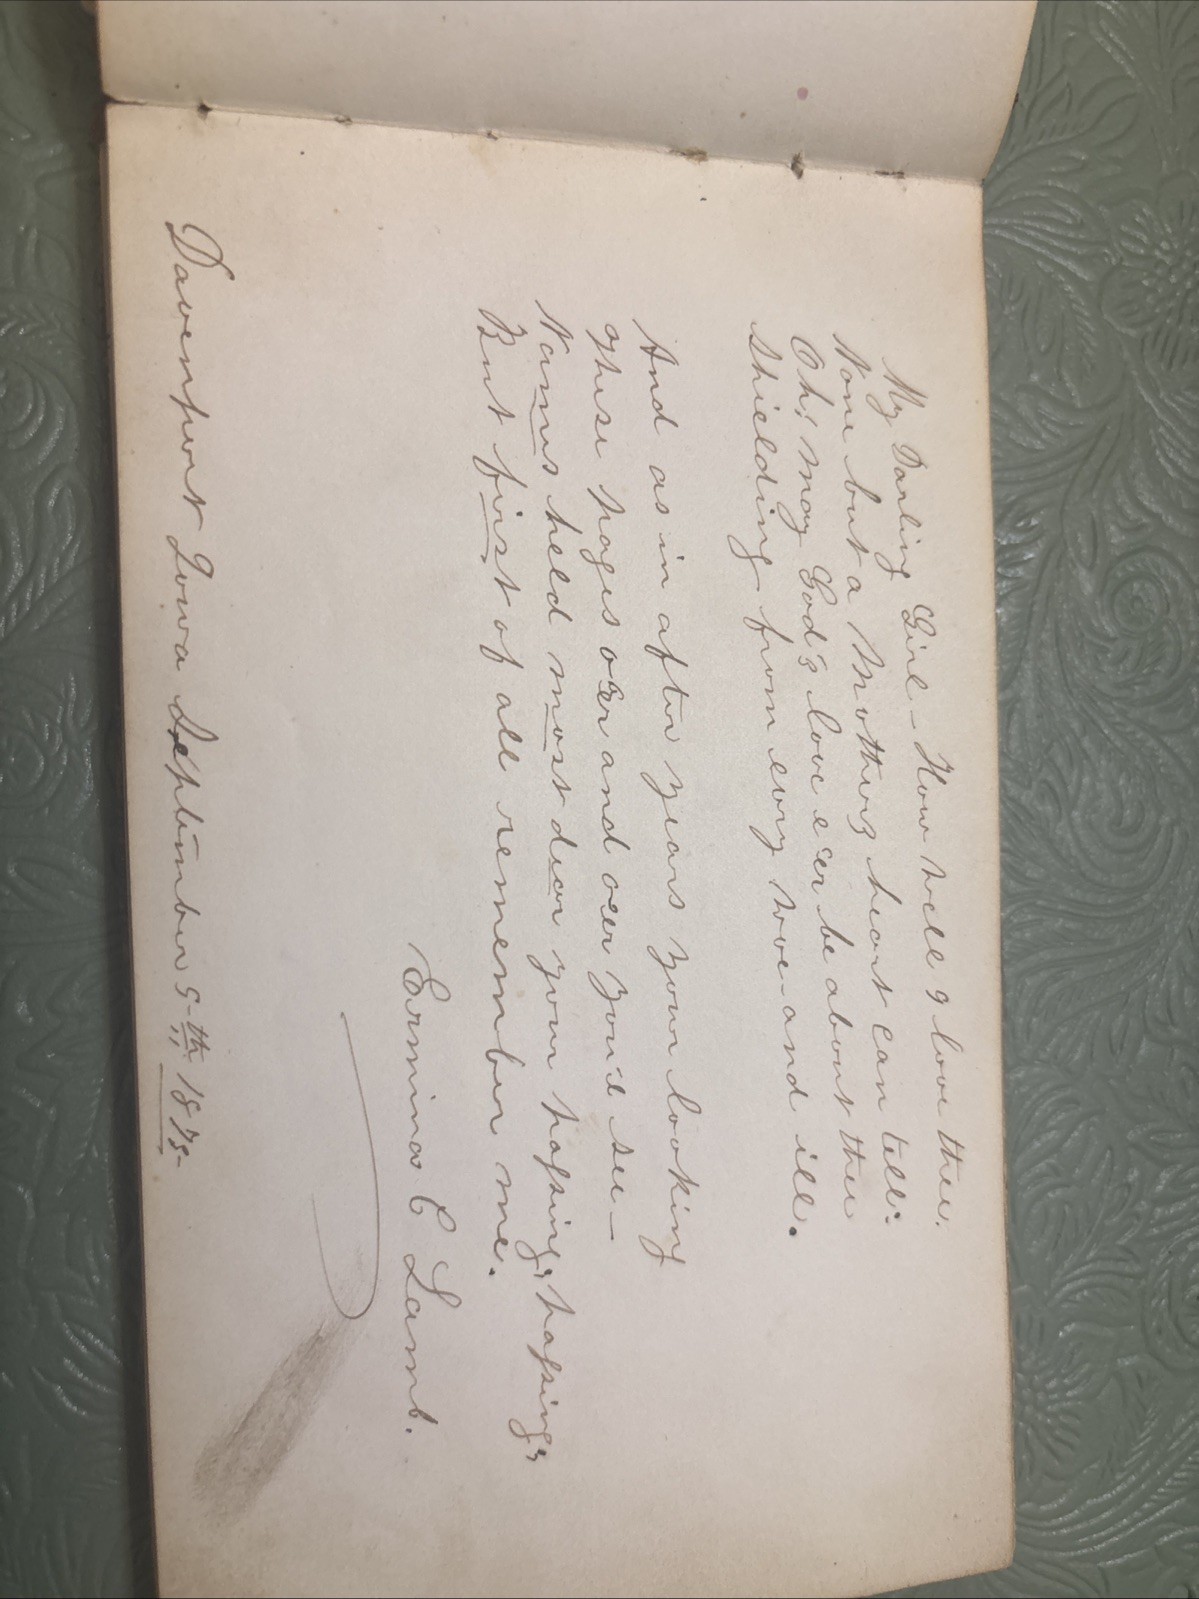 My Darling Girl - How well I love thee.
None but a Mothers heart can tell:
Oh! may God's love e'er be about thee
Shielding from every woe - and ill.
And as in after years your looking
These pages o'er and o'er you'l see -
Names held most dear your passing, passing,
But first of all remember me.
Ermina C Lamb.
Davenport Iowa September 5-th, 1875-